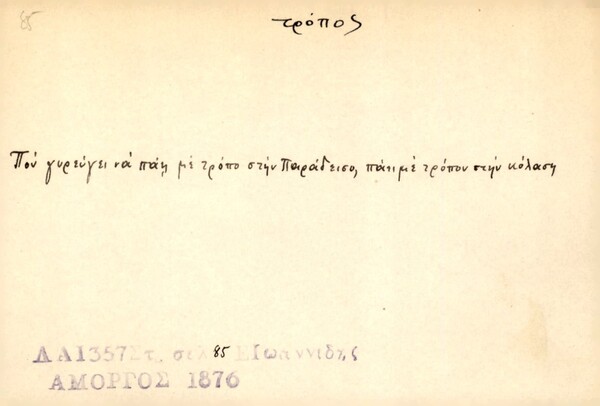 85
τρόπος
Ποὺ γυρεύγει νὰ πάῃ μὲ τρόπο στὴν Παράδεισο, πάει μὲ τρόπον στὴν κόλαση
ΛΑ1357Στ, σελ 85 Ε Ιωαννιδης
ΑΜΟΡΓΟΣ 1876